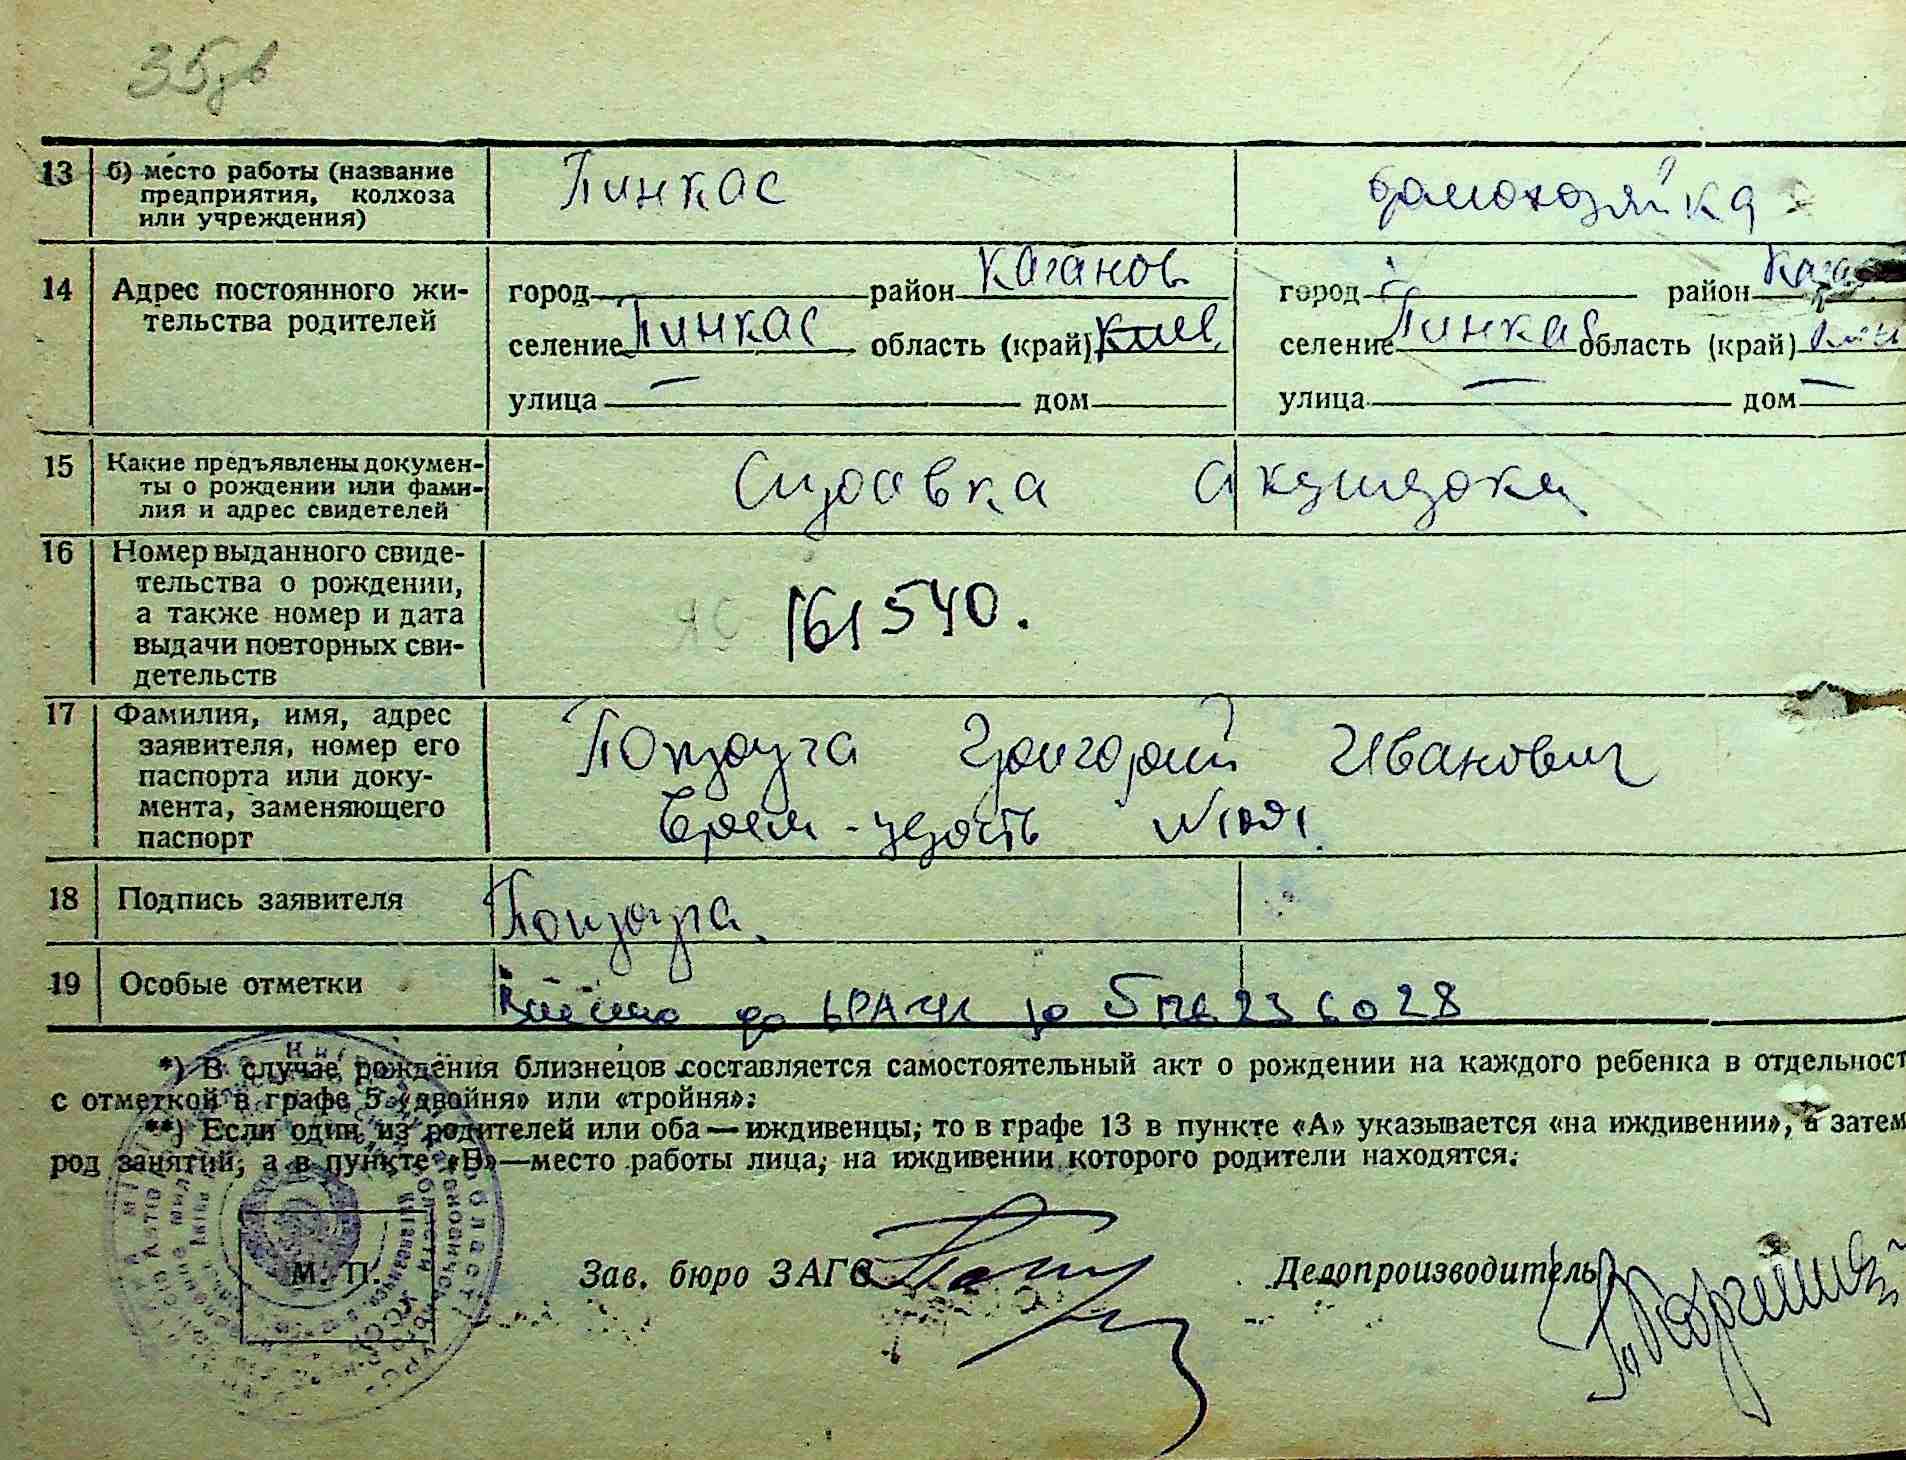 35
13 б) место работы (название
предприятия, колхоза
или учреждения)
Пинкас
домохозяйка
14 Адрес постоянного жи-
тельства родителей
город район Каганов
селение Пинкас область (край) Киев
улица — дом
город район
селение Пинкас область (край)
улица — дом —
15 Какие предъявлены докумен-
ты о рождении или фами-
лия и адрес свидетелей
Справка
16 Номер выданного свиде-
тельства о рождении,
а также номер и дата
выдачи повторных сви-
детельств
ЯС 161540.
17 Фамилия, имя, адрес
заявителя, номер его
паспорта или доку-
мента, заменяющего
паспорт
Григорий Иванович
18 Подпись заявителя
19 Особые отметки
23 6 028
*) В случае рождения близнецов составляется самостоятельный акт о рождении на каждого ребенка в отдельност
с отметкой в графе 5 «двойня» или «тройня».
**) Если один из родителей или оба — иждивенцы, то в графе 13 в пункте «А» указывается «на иждивении», а затем
род занятий, а в пункте «Б» — место работы лица, на иждивении которого родители находятся.
М. П.
Зав. бюро ЗАГС
Делопроизводитель